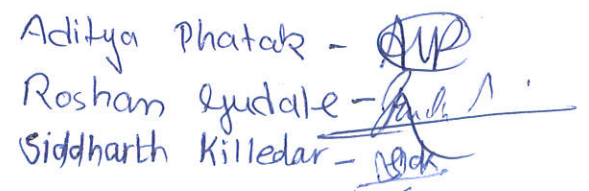 Aditya Phatak - AVP
Roshan Gudale -
Siddharth Killedar -